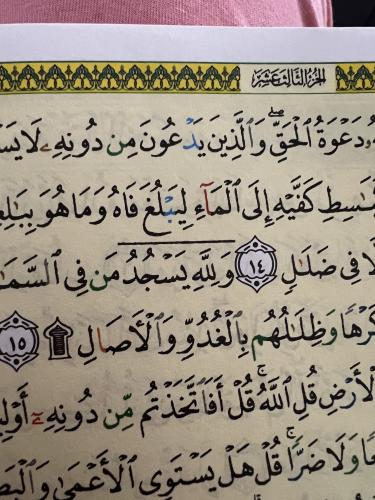 الجزء الثالث عشر
دَعْوَةُ ٱلْحَقِّۖ وَٱلَّذِينَ يَدْعُونَ مِن دُونِهِۦ لَا يَسْ
كَبَٰسِطِ كَفَّيْهِ إِلَى ٱلْمَآءِ لِيَبْلُغَ فَاهُ وَمَا هُوَ بِبَٰلِغِ
فِى ضَلَٰلٍ ١٤ وَلِلَّهِ يَسْجُدُ مَن فِى ٱلسَّمَٰ
كَرْهًا وَظِلَٰلُهُم بِٱلْغُدُوِّ وَٱلْأَصَالِ ۩ ١٥
ٱلْأَرْضِ قُلِ ٱللَّهُۚ قُلْ أَفَٱتَّخَذْتُم مِّن دُونِهِۦٓ أَوْلِ
وَلَا ضَرًّاۚ قُلْ هَلْ يَسْتَوِى ٱلْأَعْمَىٰ وَٱلْبَصِ